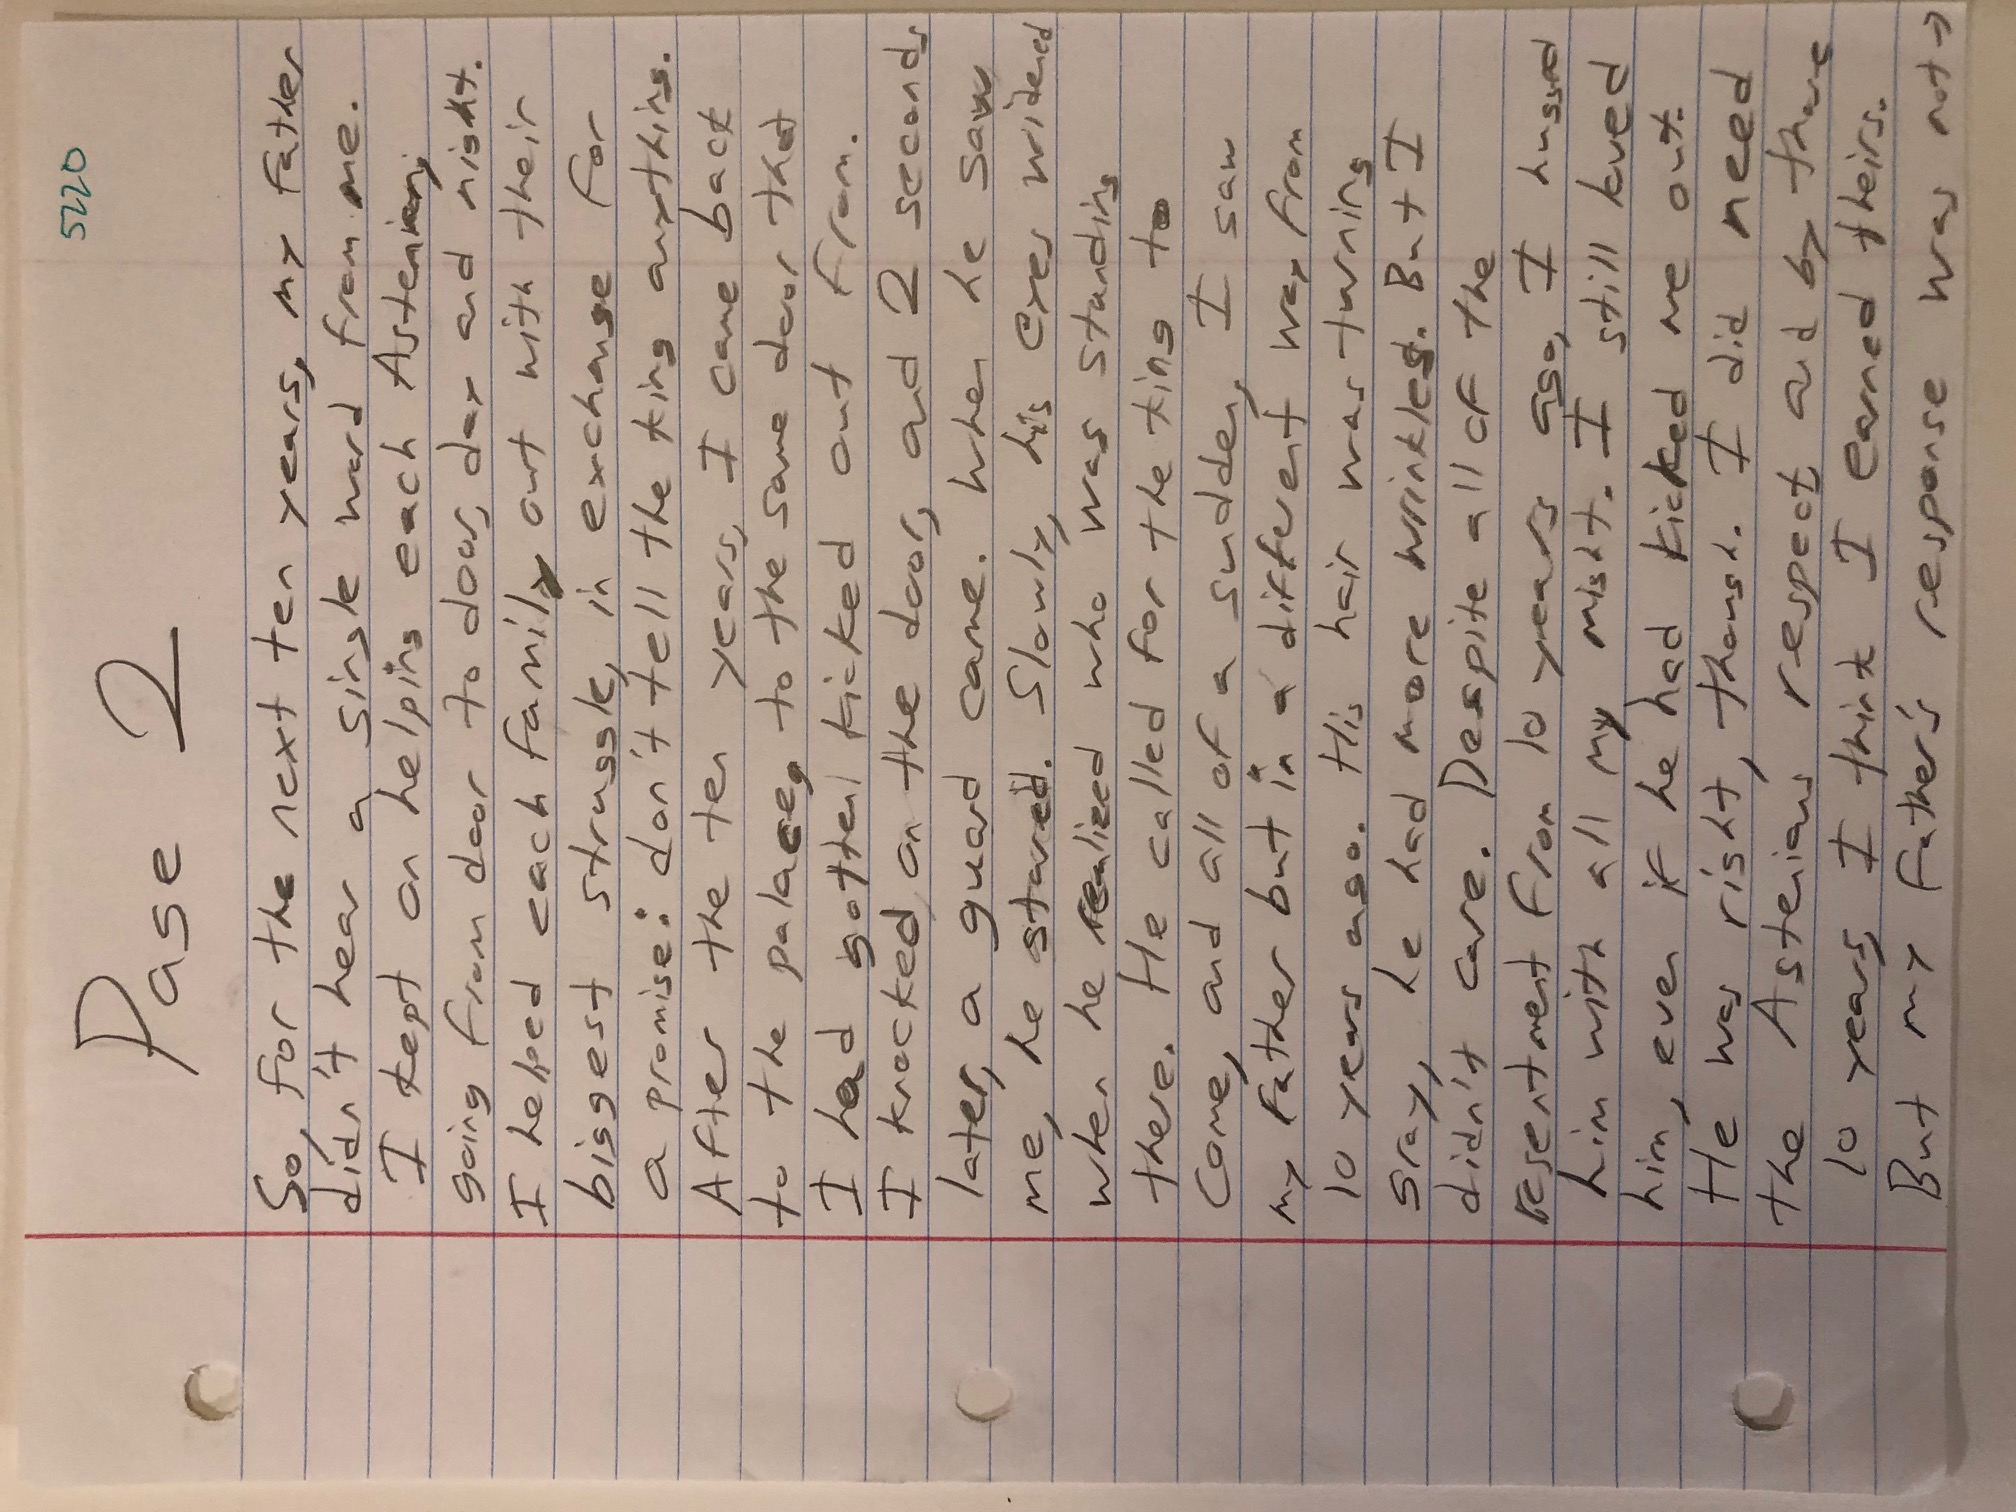 5220
Page 2
So, for the next ten years, my father
didn't hear a single word from me.
I kept on helping each Astenian,
going from door to door, day and night.
I helped each family out with their
biggest struggle, in exchange for
a promise: don't tell the king anything.
After the ten years, I came back
to the palace, to the same door that
I had gotten kicked out from.
I knocked on the door, and 2 seconds
later, a guard came. When he saw
me, he stared. Slowly, his eyes widened
when he realized who was standing
there. He called for the king to
come, and all of a sudden, I saw
my father but in a different way from
10 years ago. His hair was turning
gray, he had more wrinkles. But I
didn't care. Despite all of the
resentment from 10 years ago, I hugged
him with all my might. I still loved
him, even if he had kicked me out.
He was right, though. I did need
the Astenians respect, and by those
10 years, I think I earned theirs.
But my father's response was not →